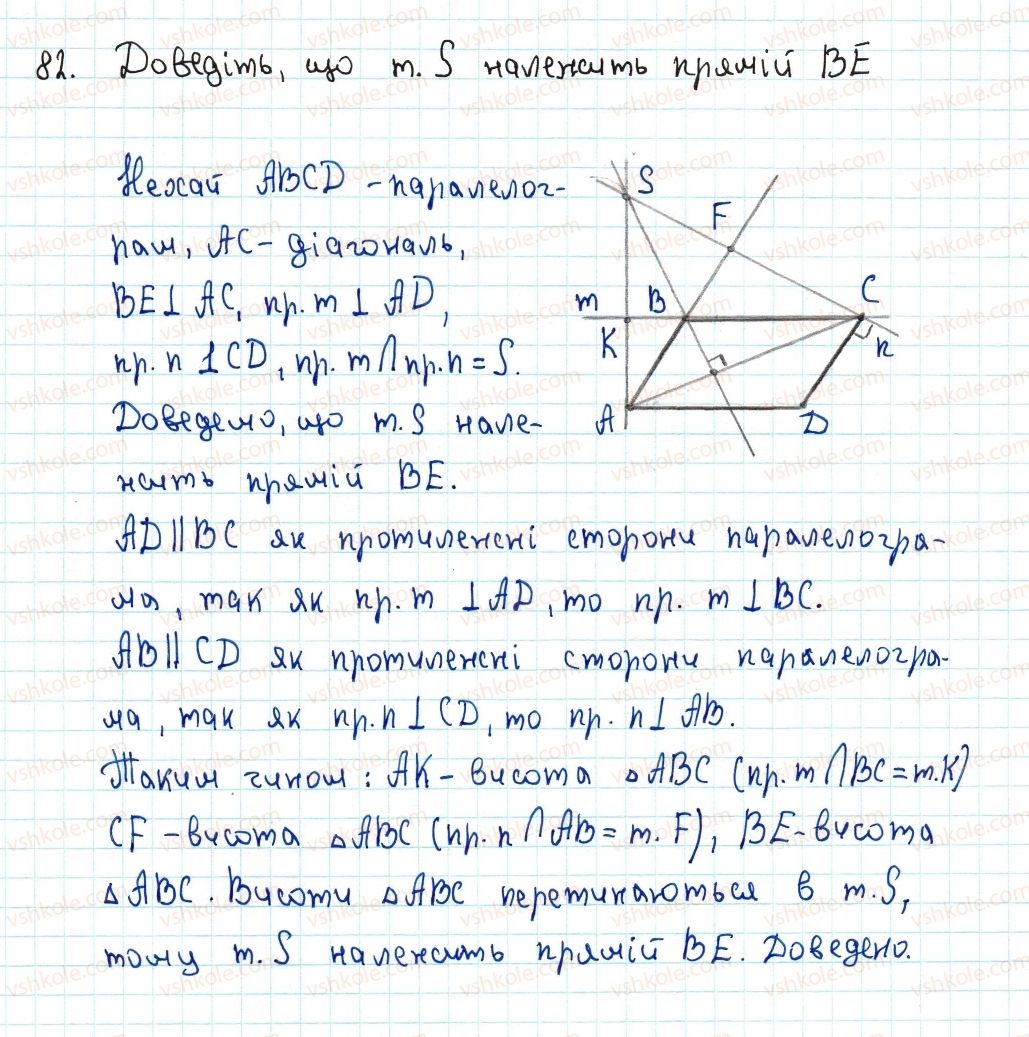 82. Доведіть, що т. S належить прямій BE
Нехай ABCD - паралелог-
рам, AC - діагональ,
BE ⊥ AC, пр. m ⊥ AD,
пр. n ⊥ CD, пр. m ⋂ пр. n = S.
Доведемо, що т. S нале-
жить прямій BE.
S
F
m
B
C
K
n
A
D
AD || BC як протилежні сторони паралелогра-
ма, так як пр. m ⊥ AD, то пр. m ⊥ BC.
AB || CD як протилежні сторони паралелогра-
ма, так як пр. n ⊥ CD, то пр. n ⊥ AB.
Таким чином: AK - висота △ABC (пр. m ⋂ BC = т. K)
CF - висота △ABC (пр. n ⋂ AB = т. F), BE - висота
△ABC. Висоти △ABC перетинаються в т. S,
тому т. S належить прямій BE. Доведено.
vshkole.com